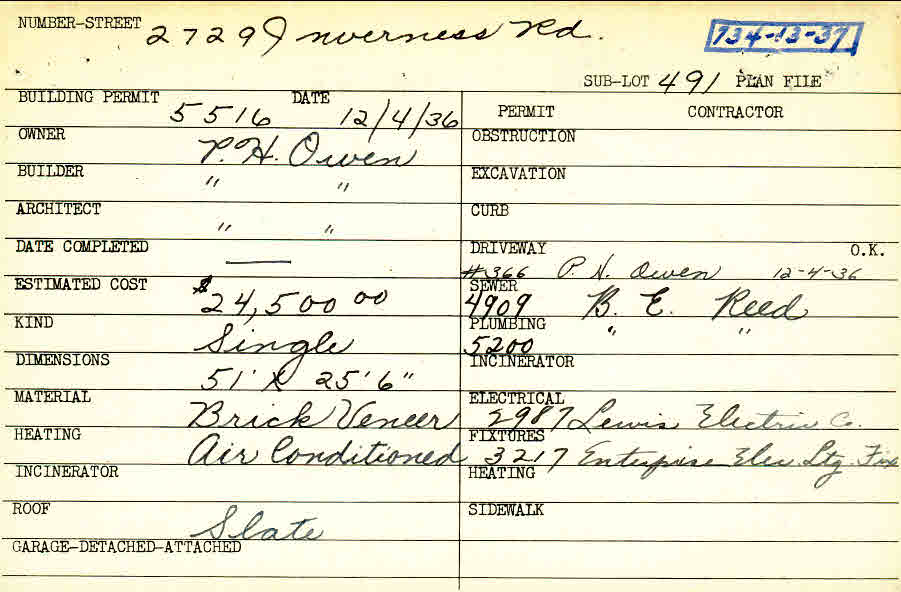 NUMBER-STREET 2729 Inverness Rd. 734-13-37
SUB-LOT 491 PLAN FILE
BUILDING PERMIT 5516 DATE 12/4/36
PERMIT CONTRACTOR
OWNER P. H. Owen
OBSTRUCTION
BUILDER " "
EXCAVATION
ARCHITECT " "
CURB
DATE COMPLETED —
DRIVEWAY O.K.
#366 P. H. Owen 12-4-36
ESTIMATED COST $24,500 00
SEWER 4909 B. E. Reed
KIND Single
PLUMBING 5200 " "
DIMENSIONS 51' X 25'6"
INCINERATOR
MATERIAL Brick Veneer
ELECTRICAL 2987 Lewis Electric Co.
HEATING Air Conditioned
FIXTURES 3217 Enterprise Elec. Ltg. Fix
INCINERATOR
HEATING
ROOF Slate
SIDEWALK
GARAGE-DETACHED-ATTACHED